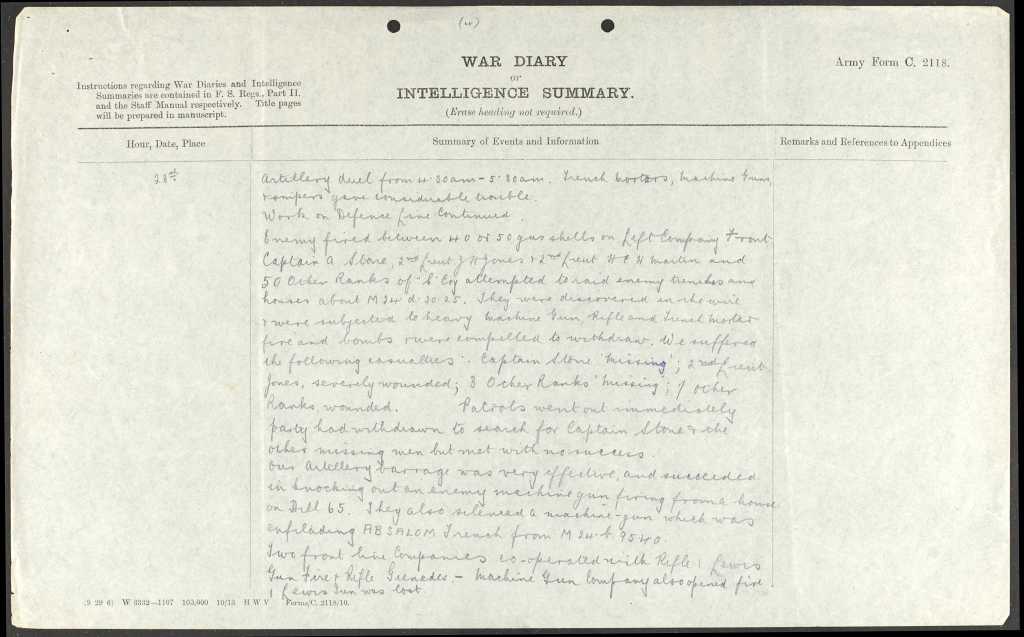 (iv)
WAR DIARY
or
INTELLIGENCE SUMMARY.
(Erase heading not required.)
Army Form C. 2118.
Instructions regarding War Diaries and Intelligence
Summaries are contained in F. S. Regs., Part II.
and the Staff Manual respectively. Title pages
will be prepared in manuscript.
Hour, Date, Place
Summary of Events and Information
Remarks and References to Appendices
28th
Artillery duel from 4.30am - 5.30am. Trench Mortars, Machine Guns,
gave considerable trouble.
Work on Defence Line Continued.
Enemy fired between 40 or 50 gas shells on Left Company Front
Captain A Stone, 2nd Lieut J H Jones & 2nd Lieut H C H Martin and
50 Other Ranks of Coy attempted to raid enemy trenches and
houses about M 24 d. 20.25. They were discovered in the wire
& were subjected to heavy Machine Gun, Rifle and Trench Mortar
fire and bombs & were compelled to withdraw. We suffered
the following casualties:- Captain Stone 'missing'; 2nd Lieut
Jones, severely wounded; 8 Other Ranks 'missing'; Other
Ranks, wounded. Patrols went out immediately
party had withdrawn to search for Captain Stone & the
other missing men but met with no success.
Our Artillery barrage was very effective, and succeeded
in knocking out an enemy machine gun firing from a house
on Hill 65. They also silenced a machine-gun which was
enfilading ABSALOM Trench from M 24. b. 95.40.
Two front line Companies co-operated with Rifle, Lewis
Gun Fire & Rifle Grenades. - Machine Gun Company also opened fire.
1 Lewis Gun was lost
(9 29 6) W 3332—1107 100,000 10/13 H W V Forms/C. 2118/10.